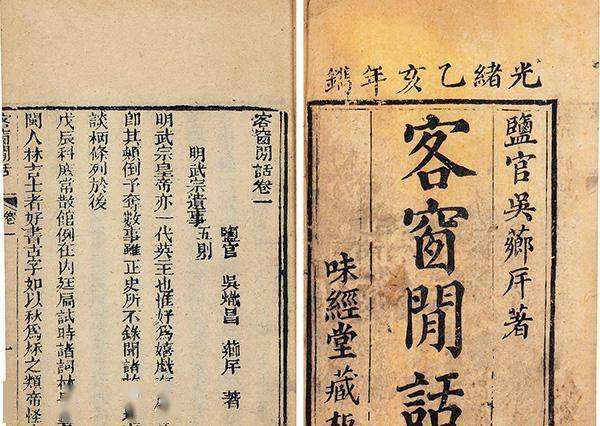 光緒乙亥年鐫
鹽官吳薌厈著
客窗閒話
味經堂藏板
客窗閒話卷一
鹽官 吳熾昌 薌厈 著
明武宗遺事 五則
明武宗皇帝亦一代英主也惟好爲嬉戲
卽其顛倒予奪數事雖正史所不錄聞諸故
談柄條列於後
戊辰科庶常散館例在内廷扃試時諸詞林
閩人林吉士者好書古字如以秋爲秌之類帝怪
客窗閒話 卷一 一